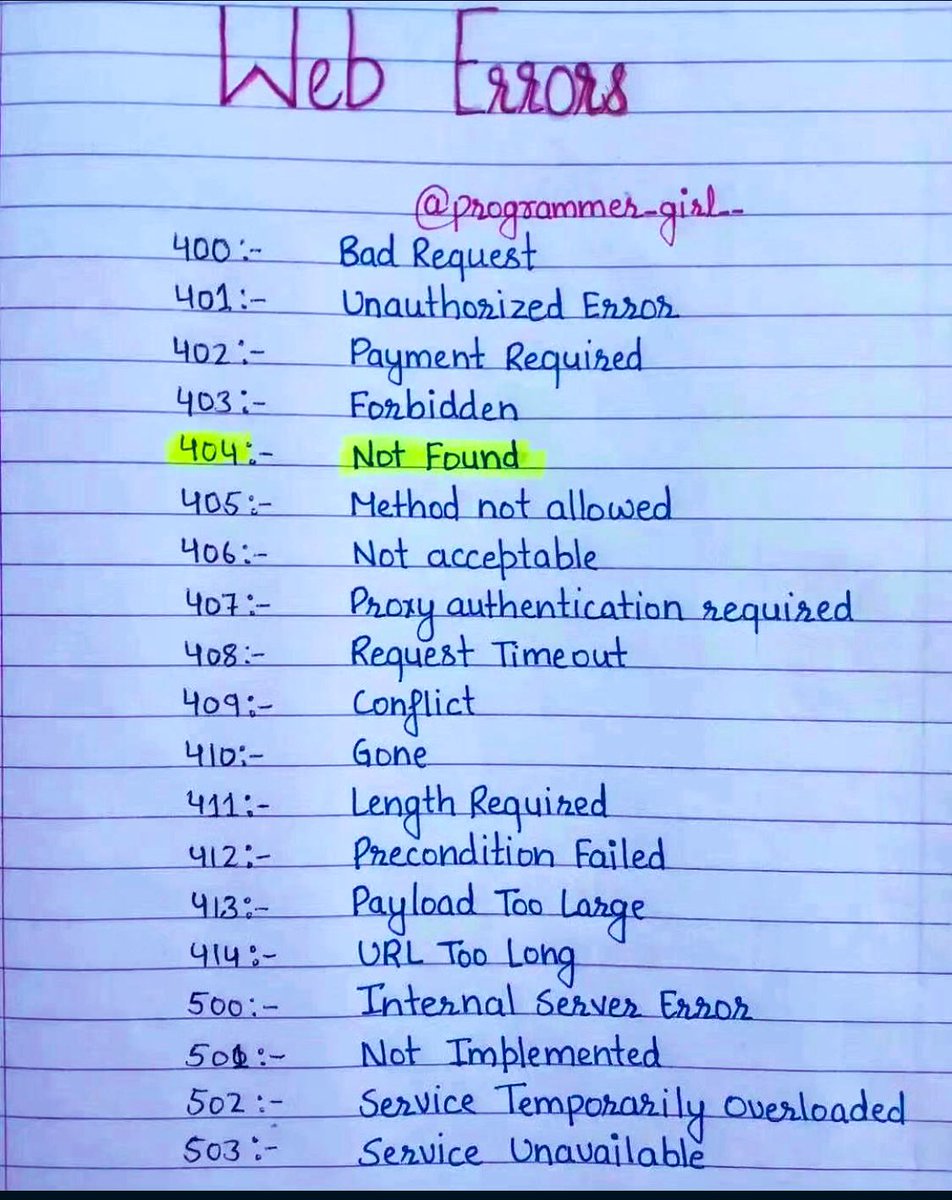 Web Errors
@programmer_girl__
400:- Bad Request
401:- Unauthorized Error
402:- Payment Required
403:- Forbidden
404:- Not Found
405:- Method not allowed
406:- Not acceptable
407:- Proxy authentication required
408:- Request Timeout
409:- Conflict
410:- Gone
411:- Length Required
412:- Precondition Failed
413:- Payload Too Large
414:- URL Too Long
500:- Internal Server Error
501:- Not Implemented
502:- Service Temporarily Overloaded
503:- Service Unavailable